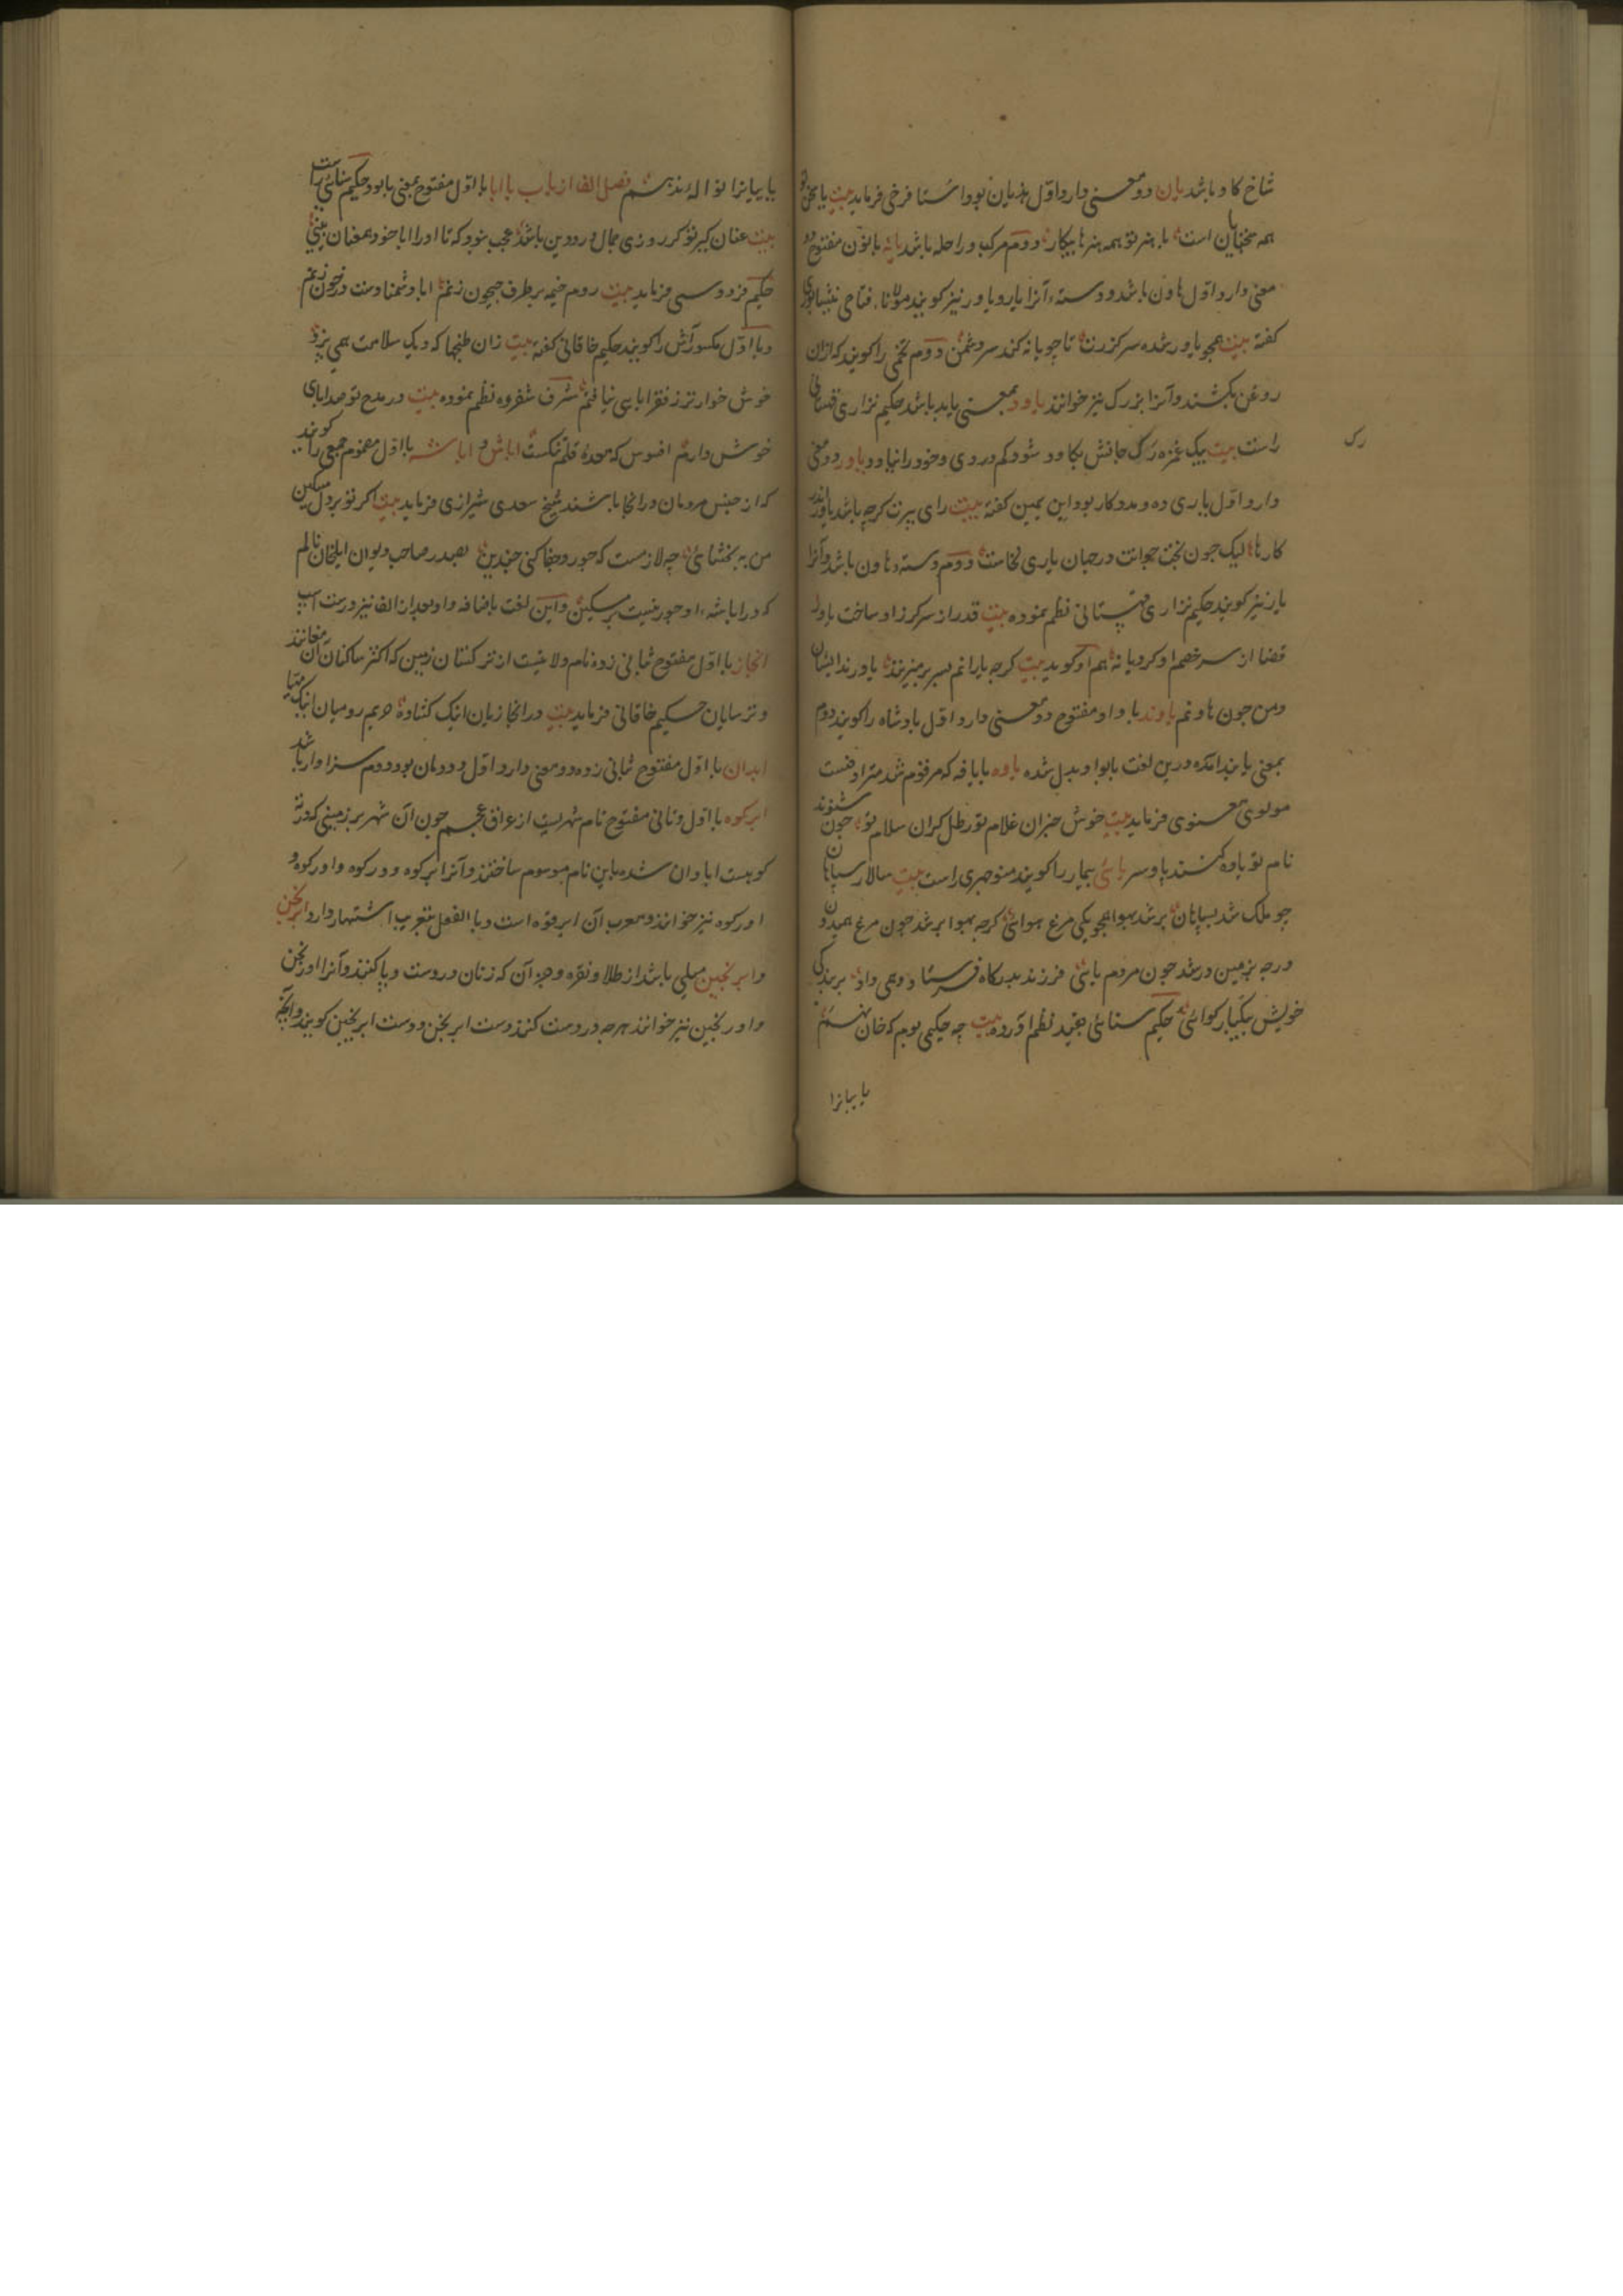 شاخ کاو باشد یان دو معنی دارد اول هذیان بود استاد فرخی فرماید بیت با سخن تو
همه سخنها یان است با هنر تو همه هنرها بیکار دوم مرکب و راحله باشد یانه با نون مفتوح دو
معنی دارد اول هاون باشد و دسته آنرا یار و یاور نیز کویند مولانا فتاحی نیشابوری
کفته بیت همچو یاور شده سر کزرت تا چو یانه کند سر دشمن دوم تخمی را کویند که ازان
روغن بکشند و آنرا بزرک نیز خوانند یاود بمعنی یابد باشد حکیم نزاری قهستانی
راست بیت بیک غمزه رک جانش بکاود شود کم در وی و خود را نیاود یاور دو معنی
دارد اول یاری ده و مددکار بود ابن یمین کفته بیت رای پیرت کرچه باشد یاور اندر
کارها لیک چون بخت جوانت در جهان یاری نخاست دوم دسته هاون باشد و آنرا
یار نیز کویند حکیم نزاری قهستانی نظم نموده بیت قدر از سر کرز او ساخت یاور
قضا از سر خصم او کرد یانه هم او کوید بیت کرچه یارانم بسر بر میزنند یاورند ایشان
و من چون هاونم یاوند با واو مفتوح دو معنی دارد اول بادشاه را کویند دوم
بمعنی یابند آمده درین لغت با بواو بدل شده یاوه با یافه که مرقوم شد مترادفست
مولوی معنوی فرماید بیت خوش خبران غلام تو رطل کران سلام تو چون شنوند
نام تو یاوه کنند پا و سر
جو ملک شد بسپاهان بر شد بهوا همچو یکی مرغ هوائی کرچه بهوا بر شد چون مرغ همیدون
ورچه بزمین در شد چون مردم
خویش بیکبار کوائی حکیم سنائی بقید نظم آورده بیت چه حکیمی بوم که خان نهم
یا بیابانرا
رک
فصل الف از باب با ابا با اول مفتوح بمعنی با بود حکیم سنائی راست
بیت عنان کیر تو کر روزی جمال درد دین باشد عجب نبود که تا او را ابا خود همعنان بینی
حکیم فردوسی فرماید بیت روم خیمه بر طرف جیحون زنم ابا دشمنا دست در خون زنم
و با اول مکسور آش را کویند حکیم خاقانی کفته بیت زان طبخها که دیک سلامت همی پزد
خوش خوارتر ز فقر ابایی نیافتم شرف شفروه نظم نموده بیت در مدح تو صد ابای
خوش دارم افسوس که معدۀ قلم تنکست اباش و اباشه با اول مضموم جمعی را کویند
که از هر جنس مردمان در انجا باشند شیخ سعدی شیرازی فرماید بیت اکر تو بر دل مسکین
من نه بخشائی چه لازمست که جور و جفا کنی چندین بصدر صاحب دیوان ایلخان نالم
که در اباشه او جور نیست بر مسکین و این لغت باضافه واو بعد از الف نیز درست است
ابخاز با اول مفتوح بثانی زده نام ولایتیست از ترکستان زمین که اکثر ساکنان آن مغانند
و ترسایان حکیم خاقانی فرماید بیت در ابخازیان اینک کشاده حریم رومیان اینک مهیا
ابدان با اول مفتوح بثانی زده دو معنی دارد اول دودمان بود دوم سزاوار باشد
ابرکوه با اول و ثانی مفتوح نام شهریست از عراق عجم چون آن شهر بر زمینی که در ته
کوهیست ابادان شده باین نام موسوم ساختند و آنرا برکوه و ورکوه و اورکوه و
اورکوه نیز خوانند و معرب آن ابرقوه است و بالفعل بتعریب اشتهار دارد ابرنجن
و ابرنجین حلی باشد از طلا و نقره و جز آن که زنان در دست و پا کنند و آنرا اورنجن
و اورنجین نیز خوانند هرچه در دست کنند دست ابرنجن و دست ابرنجین کویند و آنچه